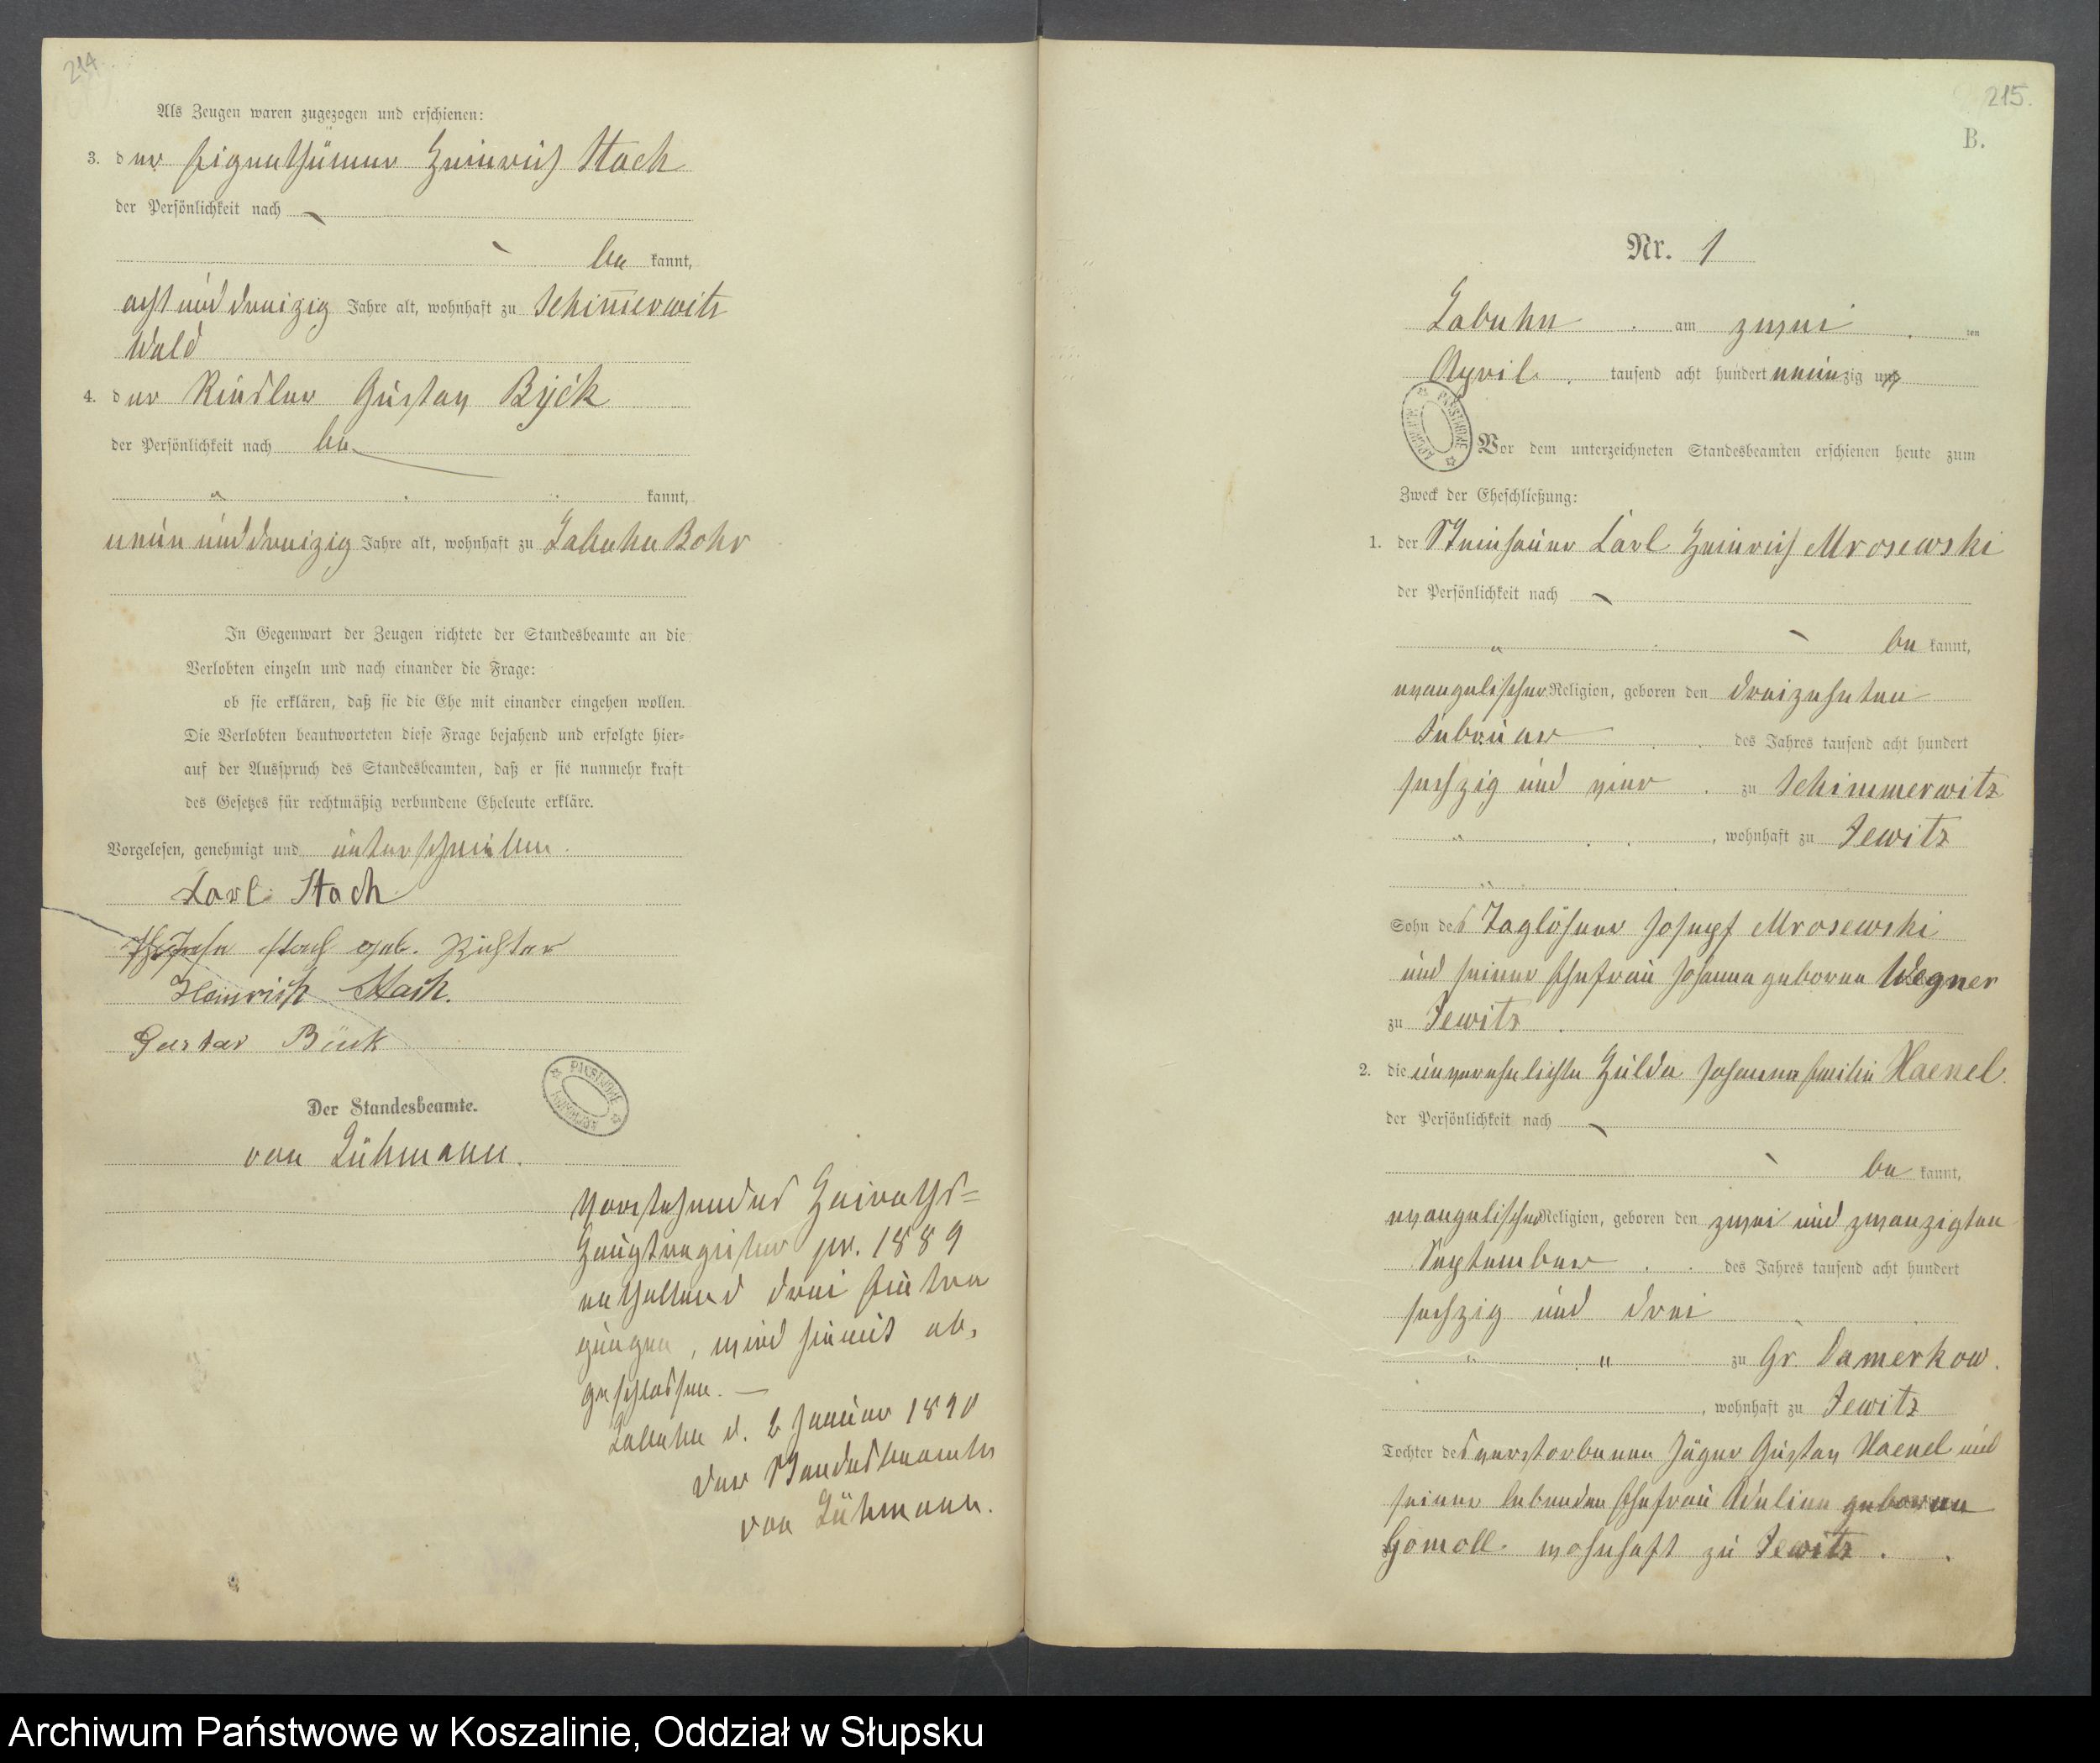 214.
Als Zeugen waren zugezogen und erschienen:
3. der Eigenthümer Heinrich Stach
der Persönlichkeit nach
be kannt,
acht und dreizig Jahre alt, wohnhaft zu Schimerwitz
Wald
4. der Büdler Gustav Byck
der Persönlichkeit nach be
kannt,
neun und dreizig Jahre alt, wohnhaft zu Labuhn Bohr
In Gegenwart der Zeugen richtete der Standesbeamte an die
Verlobten einzeln und nach einander die Frage:
ob sie erklären, daß sie die Ehe mit einander eingehen wollen.
Die Verlobten beantworteten diese Frage bejahend und erfolgte hier-
auf der Ausspruch des Standesbeamten, daß er sie nunmehr kraft
des Gesetzes für rechtmäßig verbundene Eheleute erkläre.
Vorgelesen, genehmigt und unterschrieben.
Carl Stach
Stach geb. Richter
Heinrich Stach.
Gustav Bück
Der Standesbeamte.
von Lühmann.
Vorstehendes Heiraths-
Hauptregister pr. 1889
enthaltend drei Eintra
gungen, wird hiemit ab,
geschlossen. —
Labuhn d. 2 Januar 1890
Der Standesbeamte
von Lühmann.
215.
B.
Nr. 1
Labuhn am zwei ten
April tausend acht hundert neunzig und
Vor dem unterzeichneten Standesbeamten erschienen heute zum
Zweck der Eheschließung:
1. der Steinhauer Carl Heinrich Mrosewski
der Persönlichkeit nach
be kannt,
evangelischer Religion, geboren den dreizehnten
Februar des Jahres tausend acht hundert
sechzig und vier zu Schimmerwitz
, wohnhaft zu Jewitz
Sohn des Taglöhner Joseph Mrosewski
und seiner Ehefrau Johanna geboren Wegner
zu Jewitz
2. die unverehelichte Hulda Johanna Emilie Haenel.
der Persönlichkeit nach
be kannt,
evangelischer Religion, geboren den zwei und zwanzigten
September des Jahres tausend acht hundert
sechzig und drei
" " zu Gr. Damerkow.
, wohnhaft zu Jewitz
Tochter des verstorbenen Jäger Gustav Haenel und
seiner lebenden Ehefrau Adeline geboren
Gomoll wohnhaft zu Jewitz.
Archiwum Państwowe w Koszalinie, Oddział w Słupsku